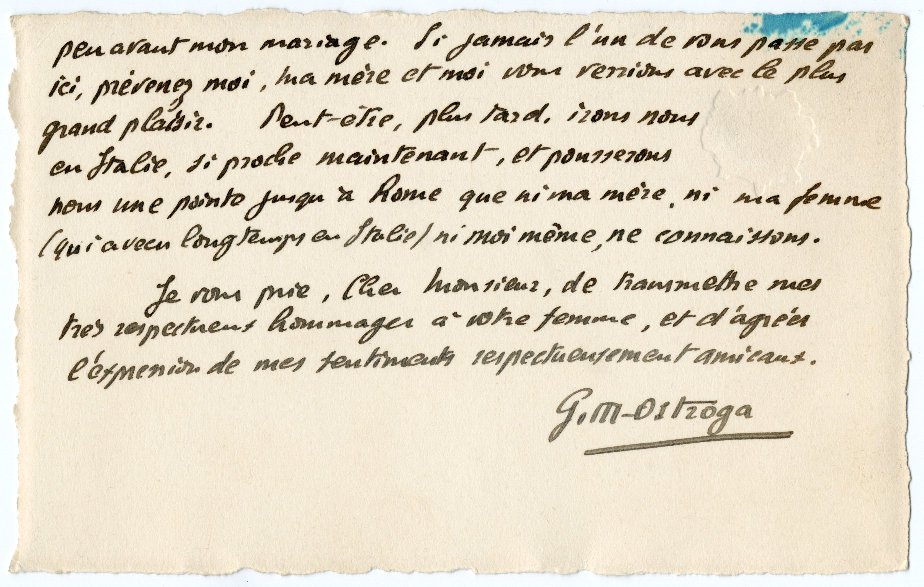 peu avant mon mariage. Si jamais l'un de vous passe par
ici, prévenez moi, ma mère et moi vous verrions avec le plus
grand plaisir. Peut-être, plus tard, irons nous
en Italie, si proche maintenant, et pousserons
nous une pointe jusqu'à Rome que ni ma mère, ni ma femme
(qui a vécu longtemps en Italie) ni moi même, ne connaissons.
Je vous prie, Cher Monsieur, de transmettre mes
très respectueux hommages à votre femme, et d'agréer
l'expression de mes sentiments respectueusement amicaux.
G.M-Ostroga